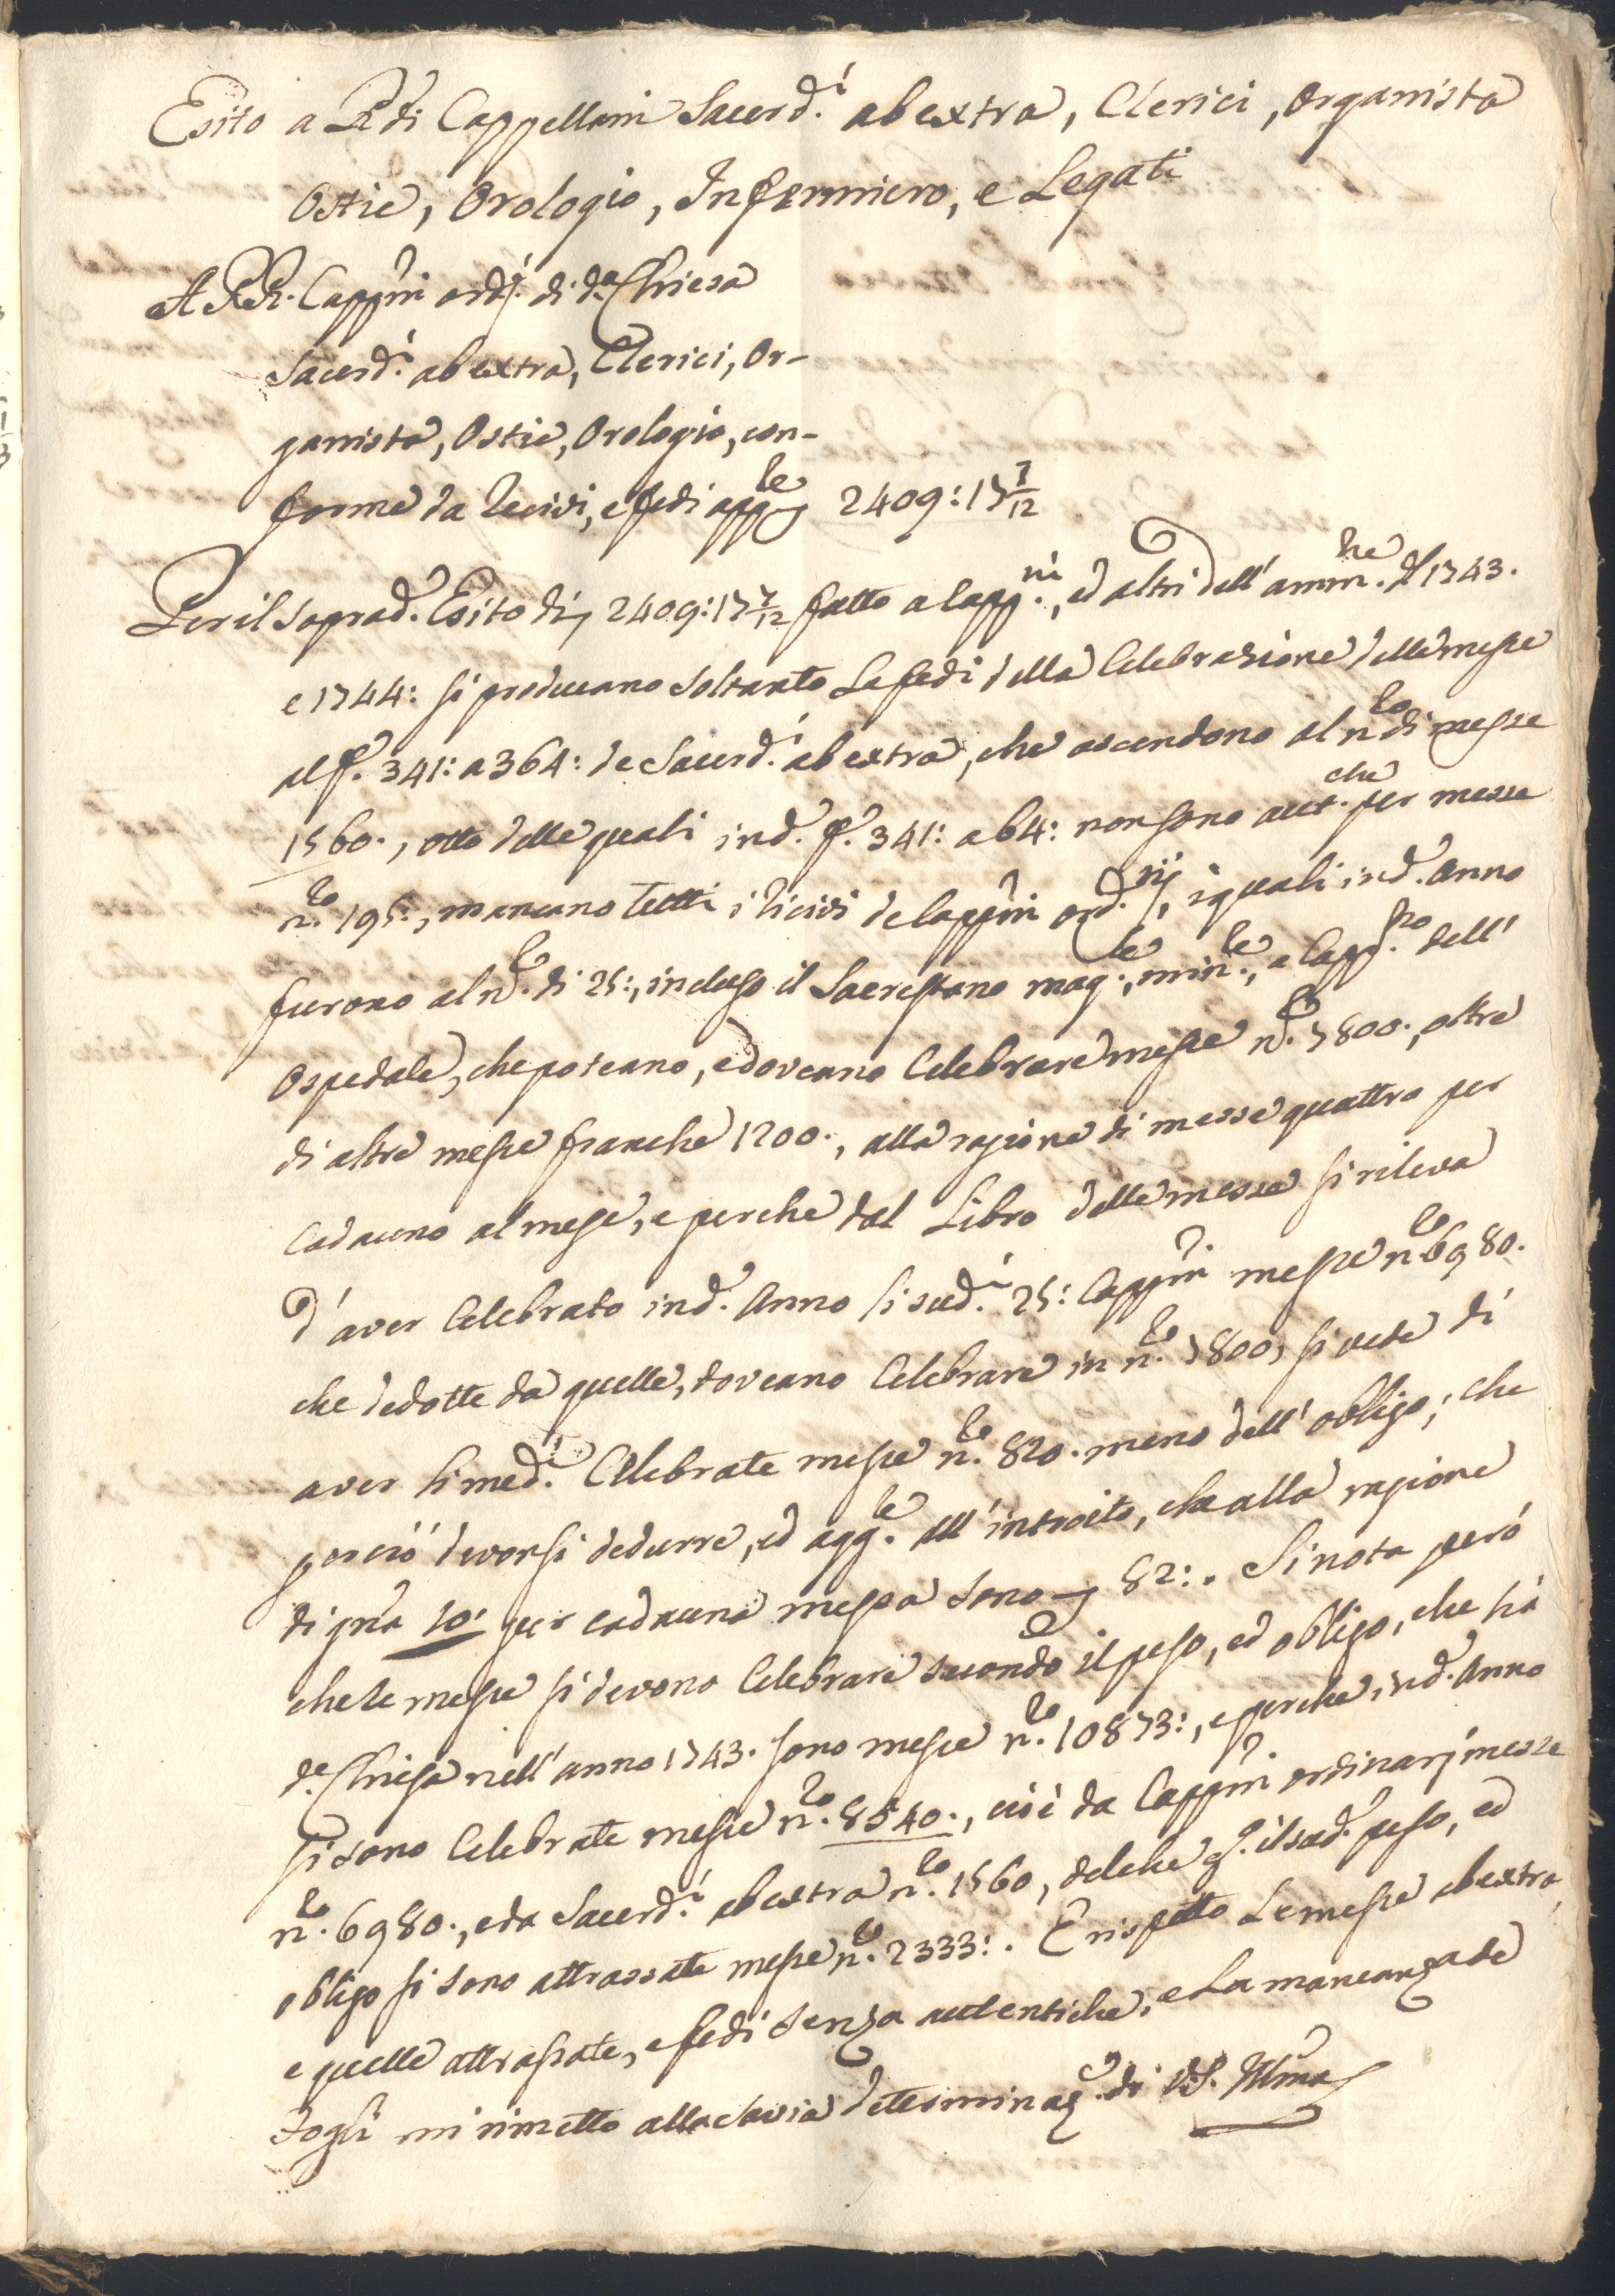 Esito a R.di Cappellani Sacerd.i ab extra, Clerici, Organista
Ostie, Orologio, Infermiero, e Legati
A RR. Capp.ni ordj. di d.a Chiesa
Sacerd.i ab extra, Clerici, Or-
ganista, Ostie, Orologio, con-
forme da ricivi, e fedi app.le 2409:17 7/12
Per il soprad.o Esito di 2409:17 7/12 fatto a Capp.ni, ed altri dell' amm.ne del 1743.
e 1744: si producano soltanto Le fedi della Celebrazione delle messe
al f. 341: a 364: de Sacerd.i ab extra, che ascendono al n.ro di messe
1560., otto delle quali in d.o f. 341: a 64: non sono aut.che per messe
n.ro 195:, mancano tutti i ricivi de Capp.ni ord.nij, i quali in d.o Anno
furono al n.ro di 25:, incluso il Sacrestano mag.re, min.re, e Capp.no dell'
Ospedale, che poteano, e doveano Celebrare messe n.ro 7800., oltre
di altre messe franche 1200., alla ragione di messe quattro per
Cadauno al mese, e perche dal Libro delle messe si rileva
d' aver Celebrato in d.o Anno li sud.i 25: Capp.ni messe n.ro 6980.
che dedotte da quelle, doveano Celebrare in n.ro 7800, si vede di
aver li med.i Celebrate messe n.ro 820. meno dell' obligo; che
perciò devonsi dedurre, ed agg.re all' introito, che alla ragione
di gra 10: per cadauna messa sono 82:. Si nota però
che le messe si devono Celebrare secondo il peso, ed obligo, che hà
d.a Chiesa nell' anno 1743. sono messe n.ro 10873:, e perche in d.o Anno
si sono Celebrate messe n.ro 8540., cioè da Capp.ni ordinarj messe
n.ro 6980., e da Sacerd.i ab extra n.ro 1560, del che p. il sud.o peso, ed
obligo si sono attrassate messe n.ro 2333:. E rispetto Le messe ab extra,
e quelle attrassate, e fedi senza autentiche, e La mancanza de
fogli mi rimetto alla savia determinaz.e di V.S. Ill.ma